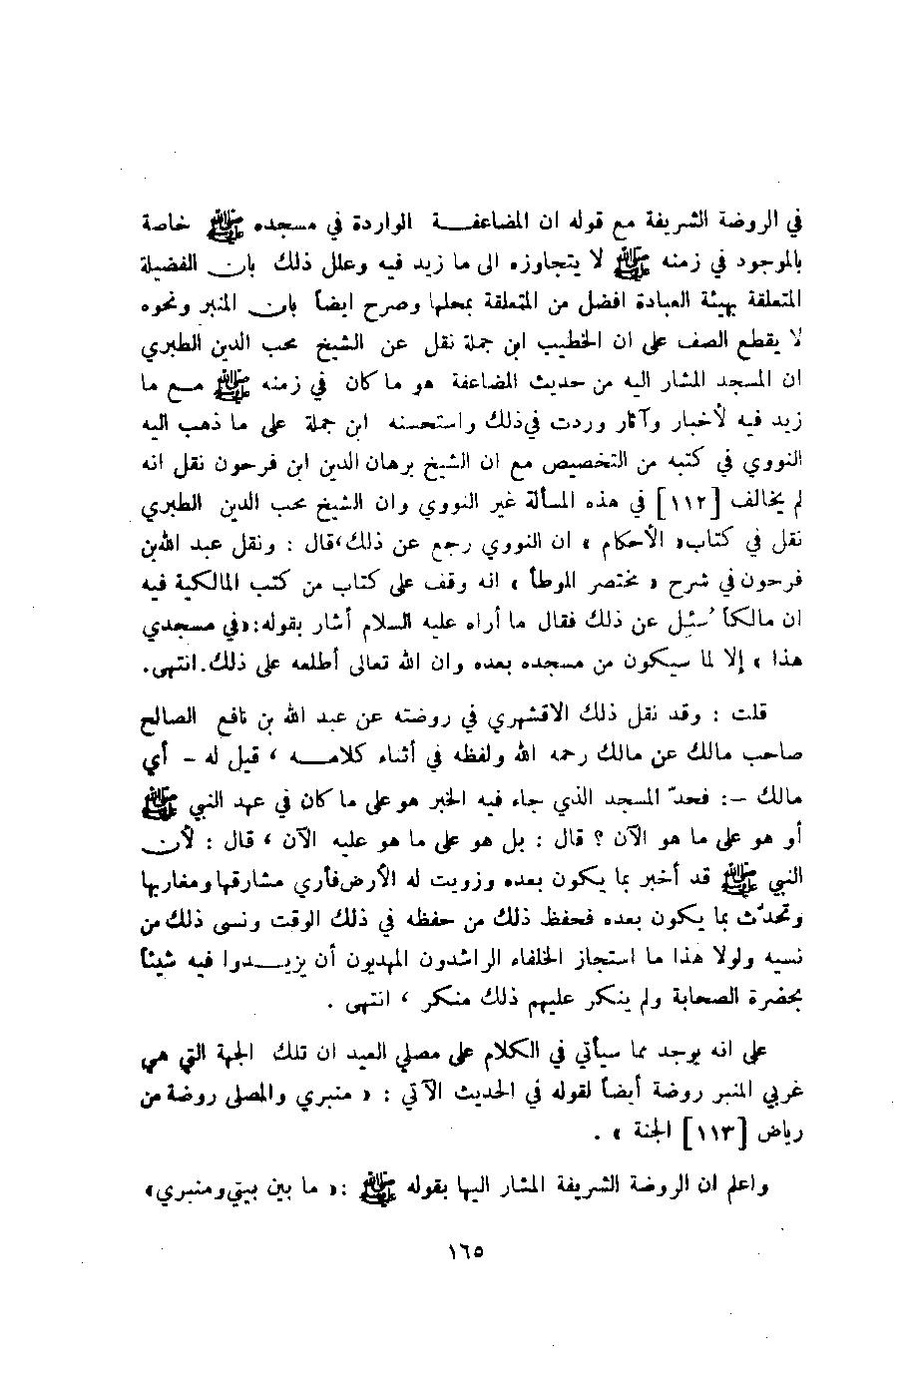 في الروضة الشريفة مع قوله ان المضاعفـــة الواردة في مسجده ﷺ خاصة
بالموجود في زمنه ﷺ لا يتجاوزه الى ما زيد فيه وعلل ذلك بان الفضيلة
المتعلقة بهيئة العبادة افضل من المتعلقة بمحلها وصرح ايضاً بان المنبر ونحوه
لا يقطع الصف على ان الخطيب ابن جملة نقل عن الشيخ محب الدين الطبري
ان المسجد المشار اليه من حديث المضاعفة هو ما كان في زمنه ﷺ مـع ما
زيد فيه لأخبار وآثار وردت في ذلك واستحسنه ابن جملة على ما ذهب اليه
النووي في كتبه من التخصيص مع ان الشيخ برهان الدين ابن فرحون نقل انه
لم يخالف [١١٢] في هذه المسألة غير النووي وان الشيخ محب الدين الطبري
نقل في كتاب« الأحكام » ان النووي رجع عن ذلك،قال : ونقل عبد الله بن
فرحون في شرح « مختصر الموطأ » انه وقف على كتاب من كتب المالكية فيه
ان مالكاً سُئِل عن ذلك فقال ما أراه عليه السلام أشار بقوله:«في مسجدي
هذا » إلا لما سيكون من مسجده بعده وان الله تعالى أطلعه على ذلك.انتهى.
قلت : وقد نقل ذلك الاقشهري في روضته عن عبد الله بن نافع الصالح
صاحب مالك عن مالك رحمه الله ولفظه في أثناء كلامـــه ، قيل له - أي
مالك -: فحدّ المسجد الذي جاء فيه الخبر هو على ما كان في عهد النبي ﷺ
أو هو على ما هو الآن ؟ قال : بل هو على ما هو عليه الآن ، قال : لأن
النبي ﷺ قد أخبر بما يكون بعده وزويت له الأرض فأري مشارقها ومغاربها
وتحدّث بما يكون بعده فحفظ ذلك من حفظه في ذلك الوقت ونسى ذلك من
نسيه ولولا هذا ما استجاز الخلفاء الراشدون المهديون أن يزيــدوا فيه شيئاً
بحضرة الصحابة ولم ينكر عليهم ذلك منكر ، انتهى .
على انه يوجد مما سيأتي في الكلام على مصلي العيد ان تلك الجهة التي هي
غربي المنبر روضة أيضاً لقوله في الحديث الآتي : « منبري والمصلى روضة من
رياض [١١٣] الجنة » .
واعلم ان الروضة الشريفة المشار اليها بقوله ﷺ :« ما بين بيتي ومنبري»
١٦٥